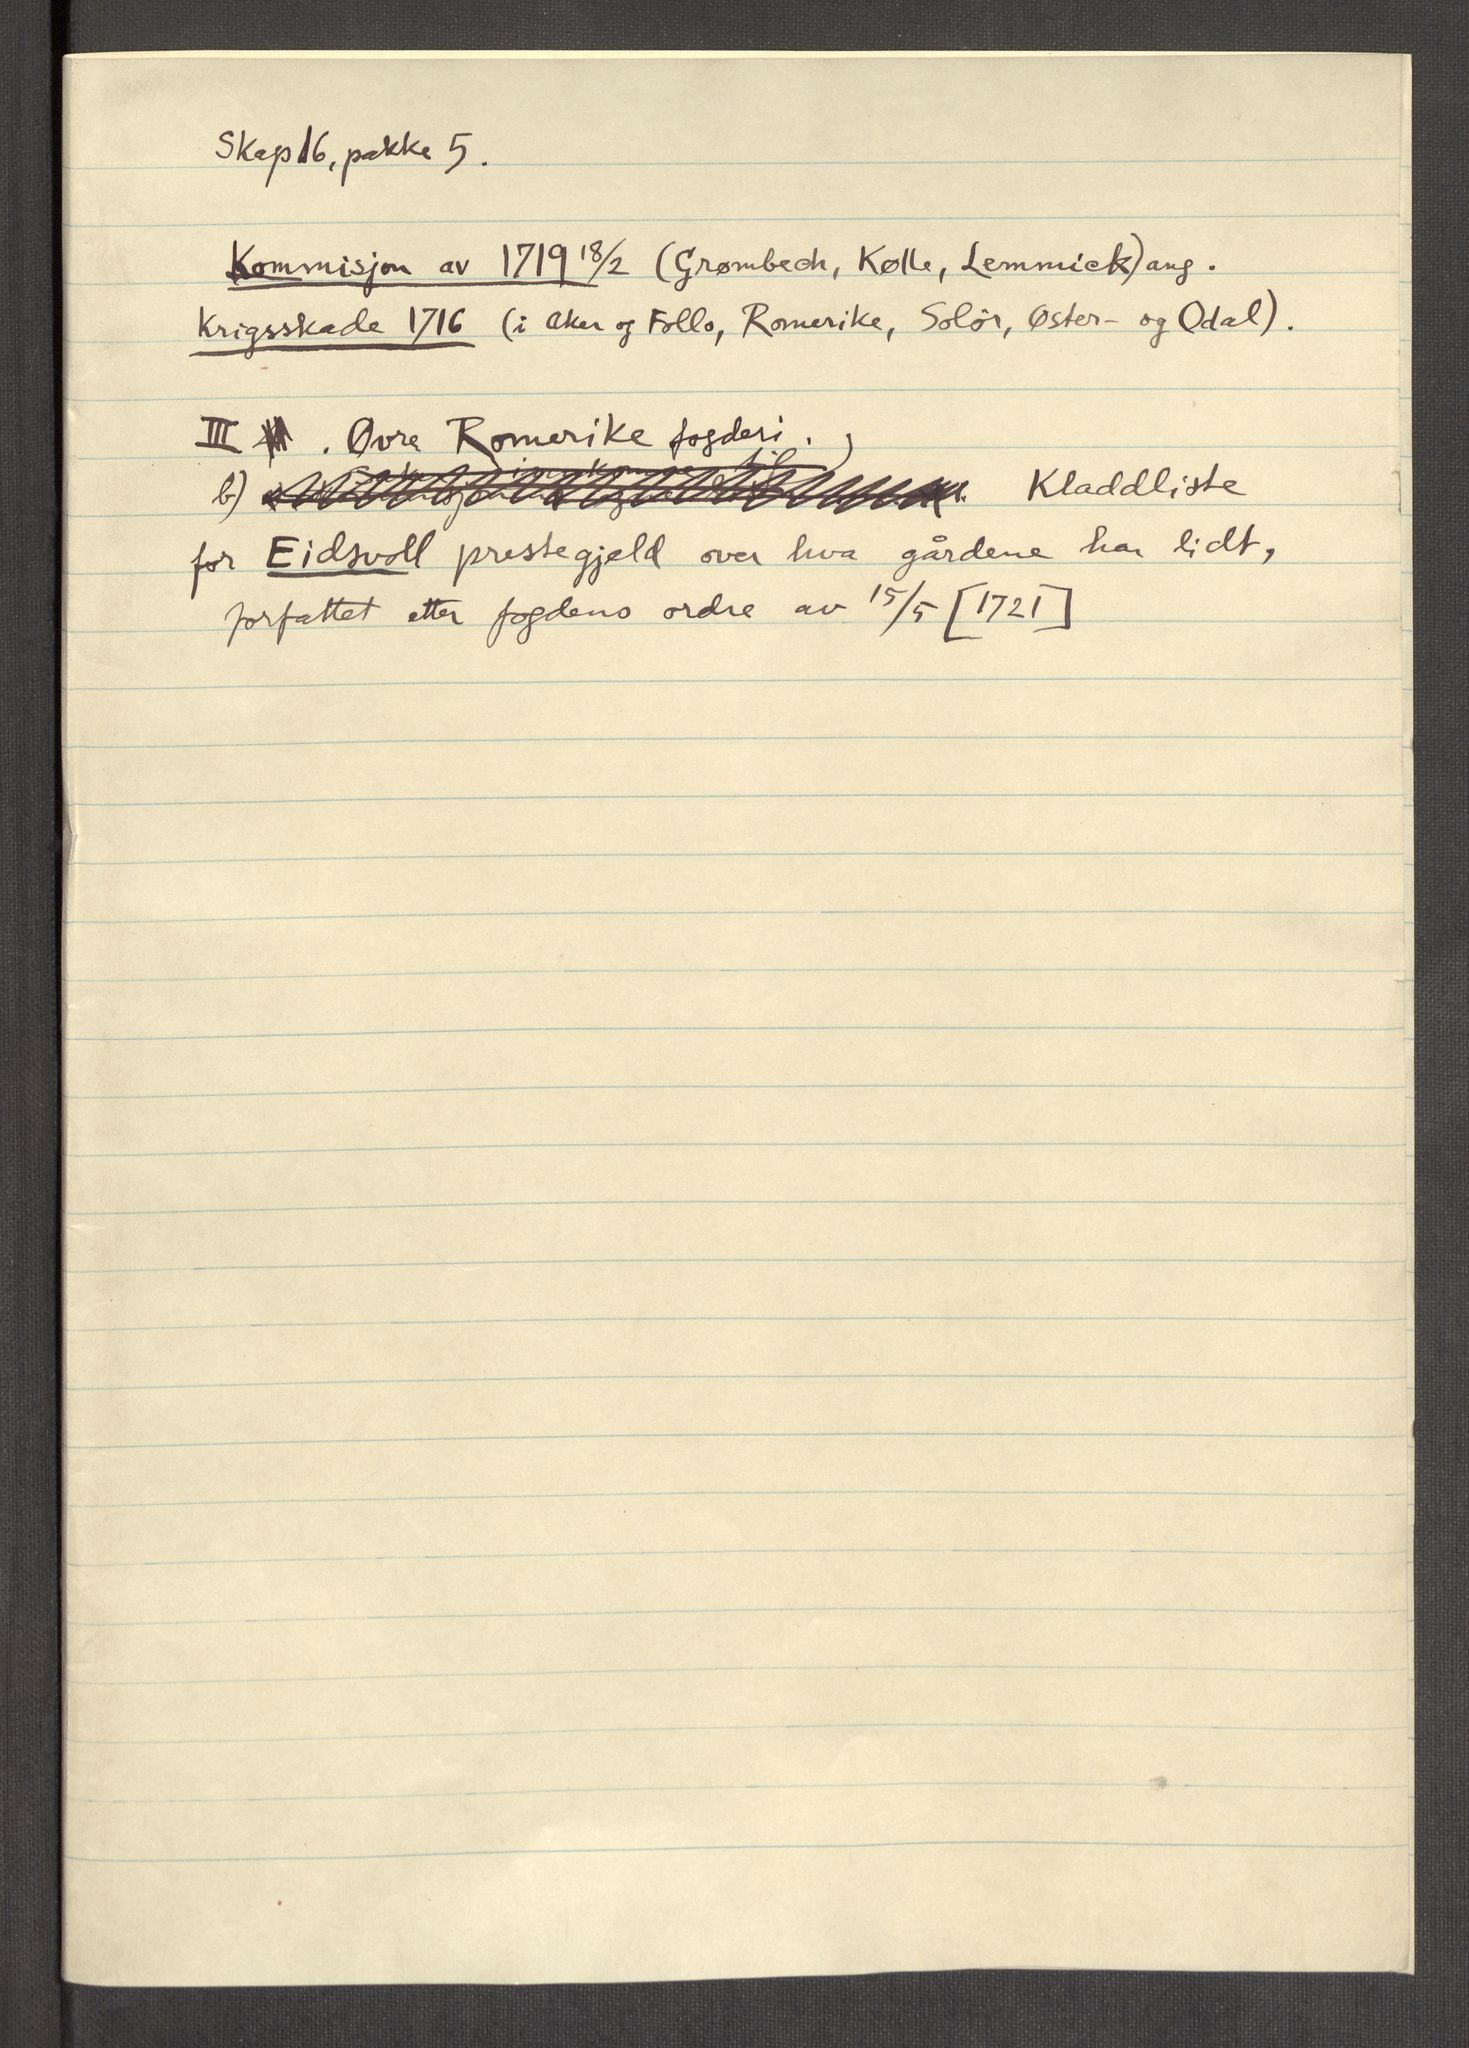 Skap 16, pakke 5.
Kommisjon av 1719 18/2 (Grømbech, Kølle, Lemmick) ang.
Krigsskade 1716 (i Aker og Follo, Romerike, Solör, Øster- og Odal).
III . Øvre Romerike fogderi.
b) Kladdliste
for Eidsvoll prestegjeld over hva gårdene har lidt,
forfattet etter fogdens ordre av 15/5 [1721]